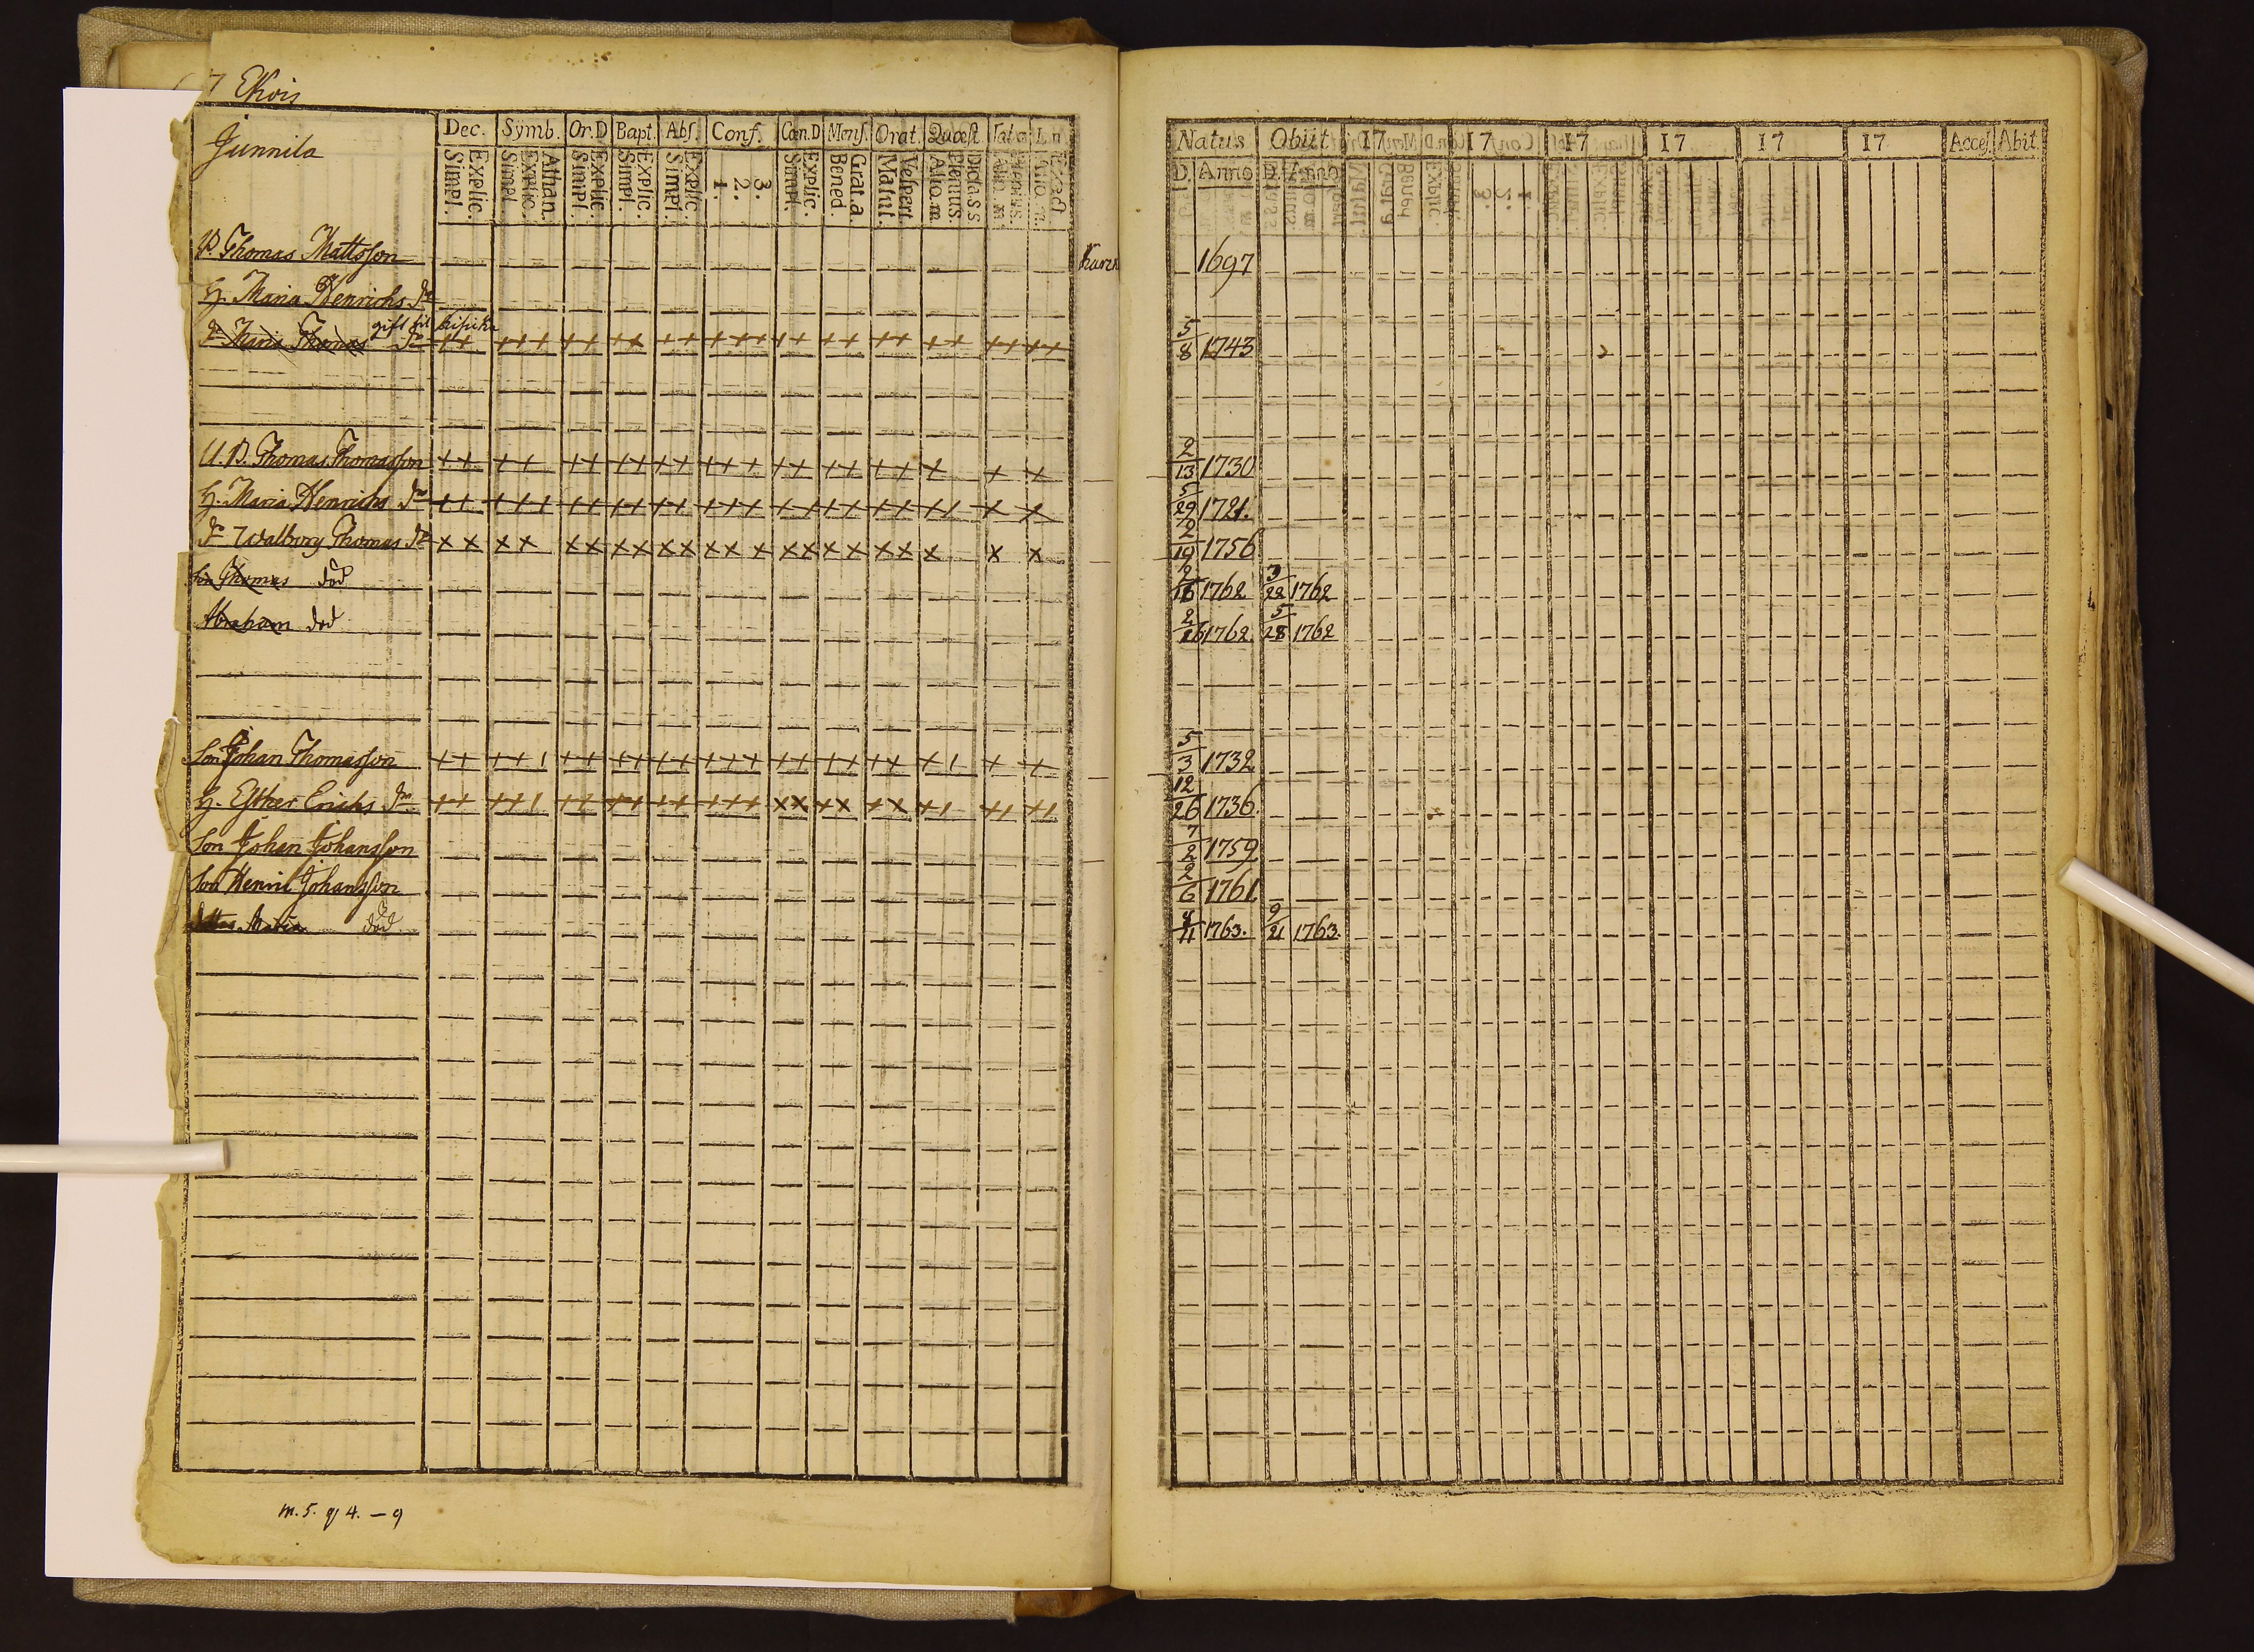 7 Ekois
Junnila
Dec. Symb. Or.D Bapt. Abs. Conf. Cœn.D Mens. Orat. Quæst
Simpl. Explic. Simpl. Explic. Athan. Simpl. Explic. Simpl. Explic. Simpl. Explic. 1. 2. 3. Simpl. Explic. Bened. Grat.a Matut. Vespert. Aliq.m Plenius.
B. Thomas Mattsson 1697
H. Maria Henrichs dr
gift til
dr Maria Thomas dr ++ +++ ++ ++ ++ +++ ++ ++ ++ ++ ++ ++ 5/8 1743
U.B. Thomas Thomasson ++ ++ ++ ++ ++ +++ ++ ++ ++ + + + 2/13 1730
H. Maria Henrichs dr ++ +++ ++ ++ ++ +++ ++ ++ ++ +1 + + 5/29 1721.
dr Walborg Thomas dr x x x x x x x x x x x x x x x x x x x x x x 2/19 1756
son Thomas död 2/16 1762 3/22 1762
Abraham död 2/16 1762. 5/28 1762
Son Johan Thomasson ++ ++ 1 ++ ++ ++ +++ ++ ++ ++ + 1 + + 5/3 1732
H. Esther Erichs dr ++ ++1 ++ ++ ++ +++ xx xx xx +1 +1 +1 12/26 1736.
Son Johan Johansson 7/2 1759
Son Henric Johansson 2/6 1761.
Maria död 1763. 9/21 1763.
m. 5. q 4. – 9
Natus. Obiit 17 17 17 17 17 17 Acces. Abit.
D. Anno D. Anno